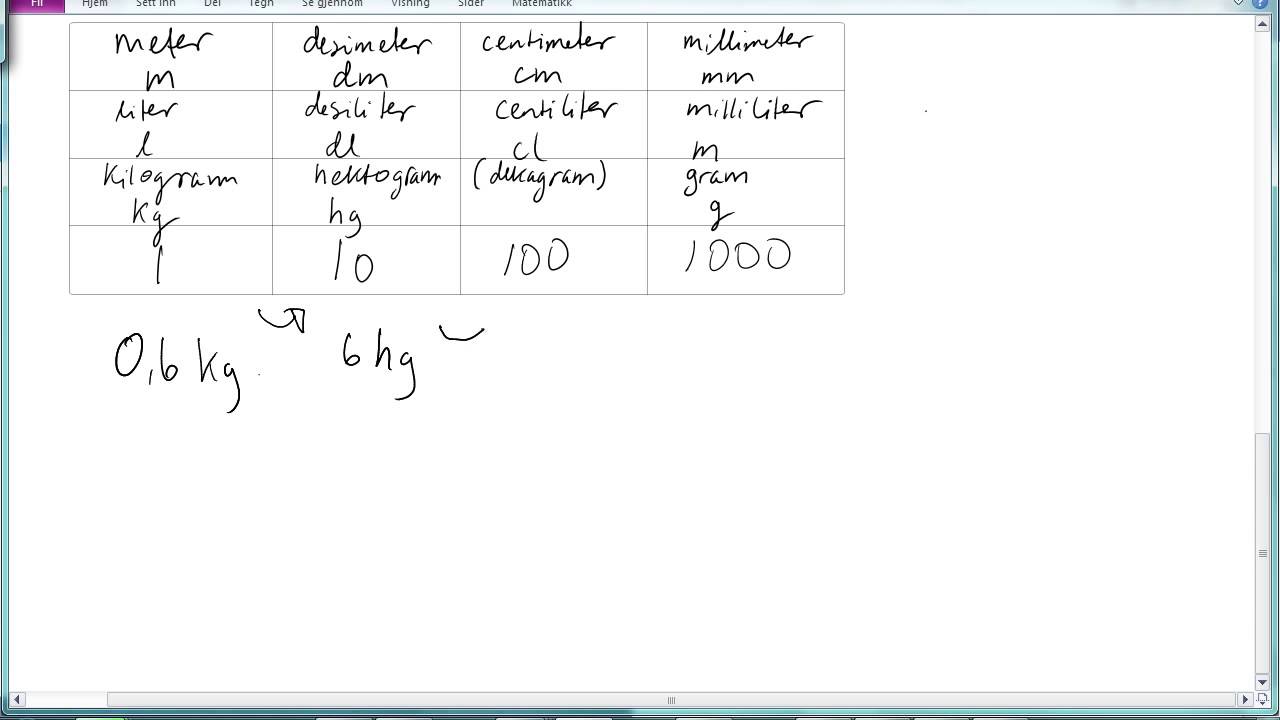 Fil Hjem Sett inn Del Tegn Se gjennom Visning Sider Matematikk
meter desimeter centimeter millimeter
m dm cm mm
liter desiliter centiliter milliliter
l dl cl m
kilogram hektogram (dekagram) gram
kg hg g
1 10 100 1000
0,6 kg 6 hg